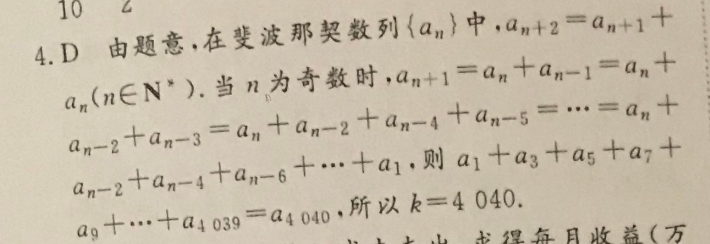 10
4. D 由题意,在斐波那契数列{aₙ}中,aₙ₊₂=aₙ₊₁+
aₙ(n∈N*).当 n 为奇数时,aₙ₊₁=aₙ+aₙ₋₁=aₙ+
aₙ₋₂+aₙ₋₃=aₙ+aₙ₋₂+aₙ₋₄+aₙ₋₅=⋯=aₙ+
aₙ₋₂+aₙ₋₄+aₙ₋₆+⋯+a₁,则 a₁+a₃+a₅+a₇+
a₉+⋯+a₄ ₀₃₉=a₄ ₀₄₀,所以 k=4 040.
求得每月收益(万